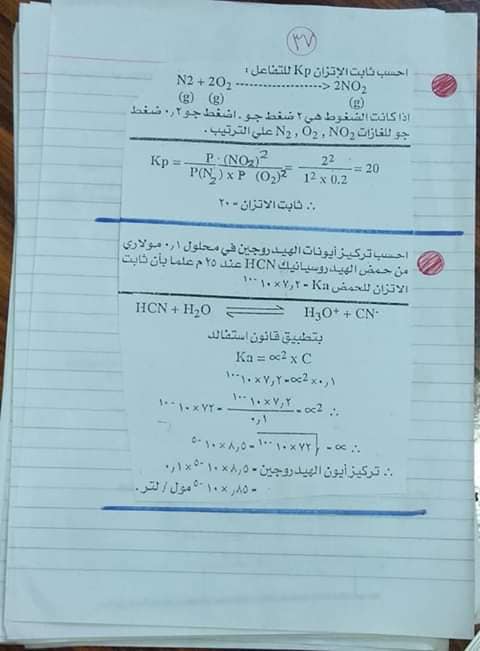 ٣٧
احسب ثابت الإتزان Kp للتفاعل :
N2 + 2O2 ----------------> 2NO2
(g) (g) (g)
اذا كانت الضغوط هي ٢ ضغط جو . ١ضغط جو ٠,٢ ضغط
جو للغازات N2 , O2 , NO2 علي الترتيب .
Kp = P (NO2)² / P(N2) x P (O2)² = 2² / 1² x 0.2 = 20
∴ ثابت الاتزان = ٢٠
احسب تركيز أيونات الهيدروجين في محلول ٠,١ مولاري
من حمض الهيدروسيانيك HCN عند ٢٥ م علما بأن ثابت
الاتزان للحمض Ka = ٧,٢ × ١٠-١٠
HCN + H2O ⇌ H3O+ + CN-
بتطبيق قانون استفالد
Ka = ∝² x C
٧,٢ × ١٠-١٠ = ∝² × ٠,١
∴ ∝² = ٧,٢ × ١٠-١٠ / ٠,١ = ٧٢ × ١٠-١٠
∴ ∝ = √٧٢ × ١٠-١٠ = ٨,٥ × ١٠-٥
∴ تركيز أيون الهيدروجين = ٨,٥ × ١٠-٥ × ٠,١
= ٨٥, × ١٠-٥ مول / لتر .